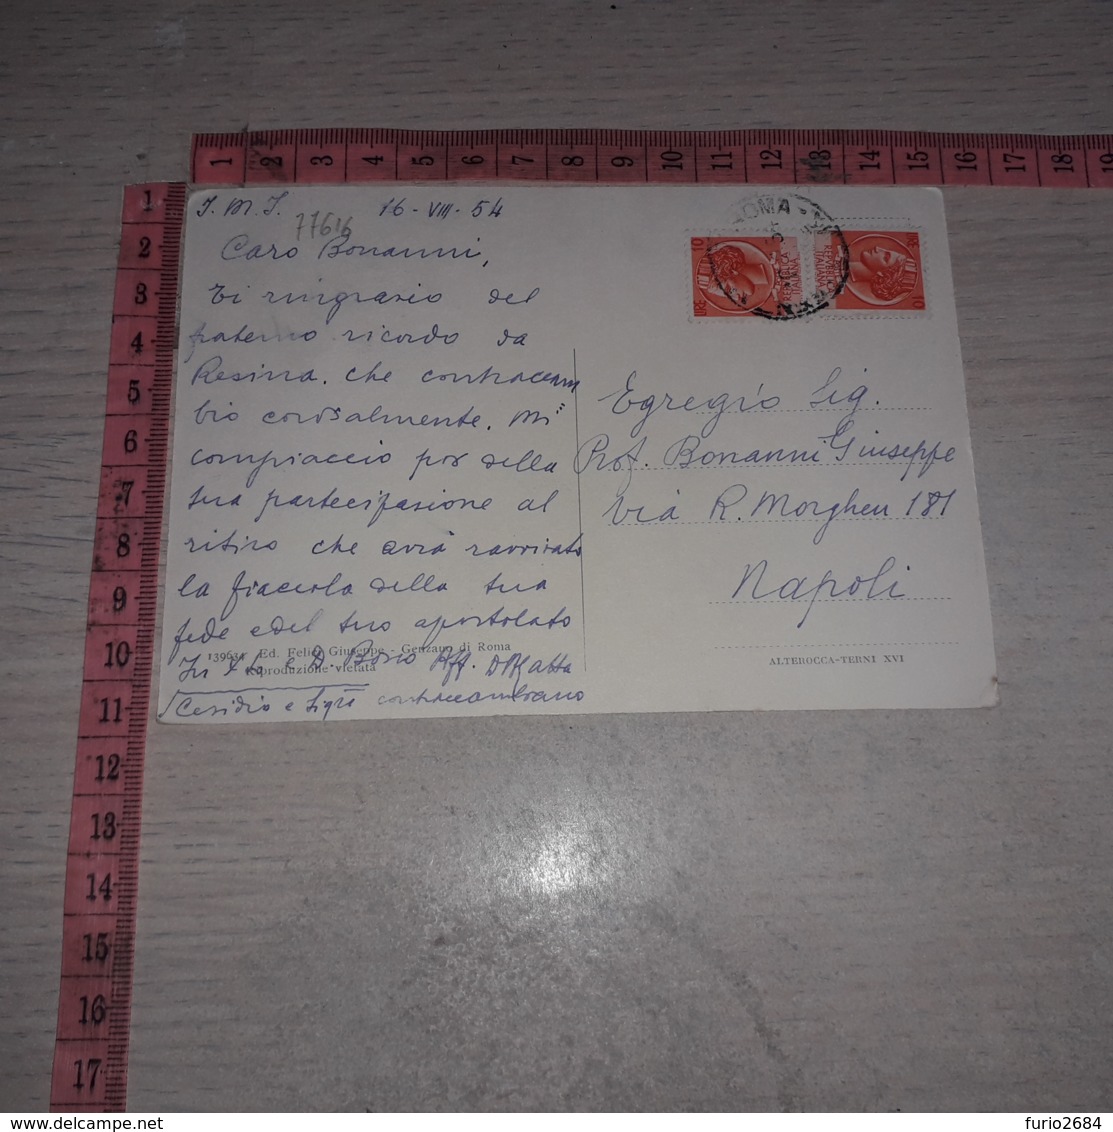 1 2 3 4 5 6 7 8 9 10 11 12 13 14 15 16 17 18 19
1 2 3 4 5 6 7 8 9 10 11 12 13 14 15 16 17
J. M. J. 16-VIII-54
77616
Caro Bonanni,
Ti ringrazio del
fraterno ricordo da
Resina, che contraccam
bio cordialmente. Mi
compiaccio poi della
tua partecipazione al
ritiro che avrà ravvivato
la fiaccola della tua
fede e del tuo apostolato
In X to e D. Bosco Aff.
Cesidio e Sig.ra contraccambiano
139634 Ed. Felici Giuseppe - Genzano di Roma
Riproduzione vietata
ROMA
LIRE 10
REPUBBLICA
ITALIANA
LIRE 10
REPUBBLICA
ITALIANA
Egregio Sig.
Prof. Bonanni Giuseppe
Via R. Morghen 181
Napoli
ALTEROCCA-TERNI XVI
www.delcampe.net
furio2684